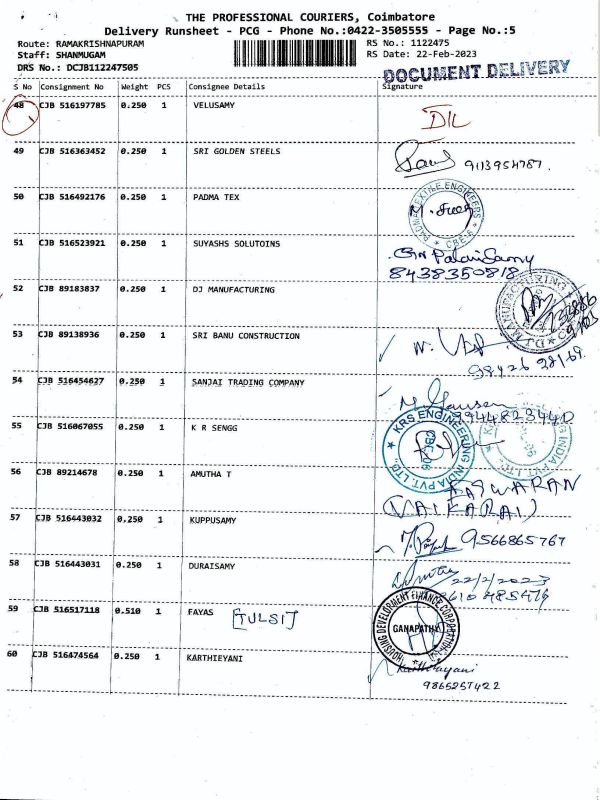 THE PROFESSIONAL COURIERS, Coimbatore
Delivery Runsheet - PCG - Phone No.:0422-3505555 - Page No.:5
Route: RAMAKRISHNAPURAM
RS No.: 1122475
Staff: SHANMUGAM
RS Date: 22-Feb-2023
DRS No.: DCJB112247505
DOCUMENT DELIVERY
S No Consignment No Weight PCS Consignee Details Signature
48 CJB 516197785 0.250 1 VELUSAMY
DIL
49 CJB 516363452 0.250 1 SRI GOLDEN STEELS
9113954787.
50 CJB 516492176 0.250 1 PADMA TEX
51 CJB 516523921 0.250 1 SUYASHS SOLUTOINS
PalaniSamy
8438350818
52 CJB 89183837 0.250 1 DJ MANUFACTURING
53 CJB 89138936 0.250 1 SRI BANU CONSTRUCTION
54 CJB 516454627 0.250 1 SANJAI TRADING COMPANY
9944823440
KRS ENGINEERING INDIA PVT. LTD.
55 CJB 516067055 0.250 1 K R SENGG
56 CJB 89214678 0.250 1 AMUTHA T
(VAIKARAI)
57 CJB 516443032 0.250 1 KUPPUSAMY
9566865767
58 CJB 516443031 0.250 1 DURAISAMY
22/2/2023
59 CJB 516517118 0.510 1 FAYAS [TULSI]
HOUSING DEVELOPMENT FINANCE CORPORATION
GANAPATHY
60 CJB 516474564 0.250 1 KARTHIEYANI
Karthiyayani
9865257422